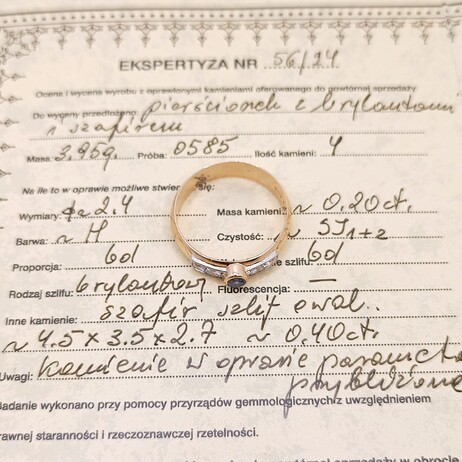 EKSPERTYZA NR 56/24
Ocena i wycena wyrobu z oprawionymi kamieniami oferowanego do powtórnej sprzedaży
Do wyceny przedłożono: pierścionek z brylantami
i szafirem
Masa: 3.95g. Próba: 0585 Ilość kamieni: 4
Na ile to w oprawie możliwe stwier się:
Wymiary: 2.4 Masa kamieni: ~ 0.20ct.
Barwa: ~ H Czystość: ~ SI1÷2
Proporcja: bd szlifu: bd
Rodzaj szlifu: brylantowy Fluorescencja: —
Inne kamienie: szafir szlif owal.
~ 4.5 x 3.5 x 2.7 ~ 0,40ct.
Uwagi: kamienie w oprawie parametr
przybliżone
Badanie wykonano przy pomocy przyrządów gemmologicznych z uwzględnieniem
rawnej staranności i rzeczoznawczej rzetelności.